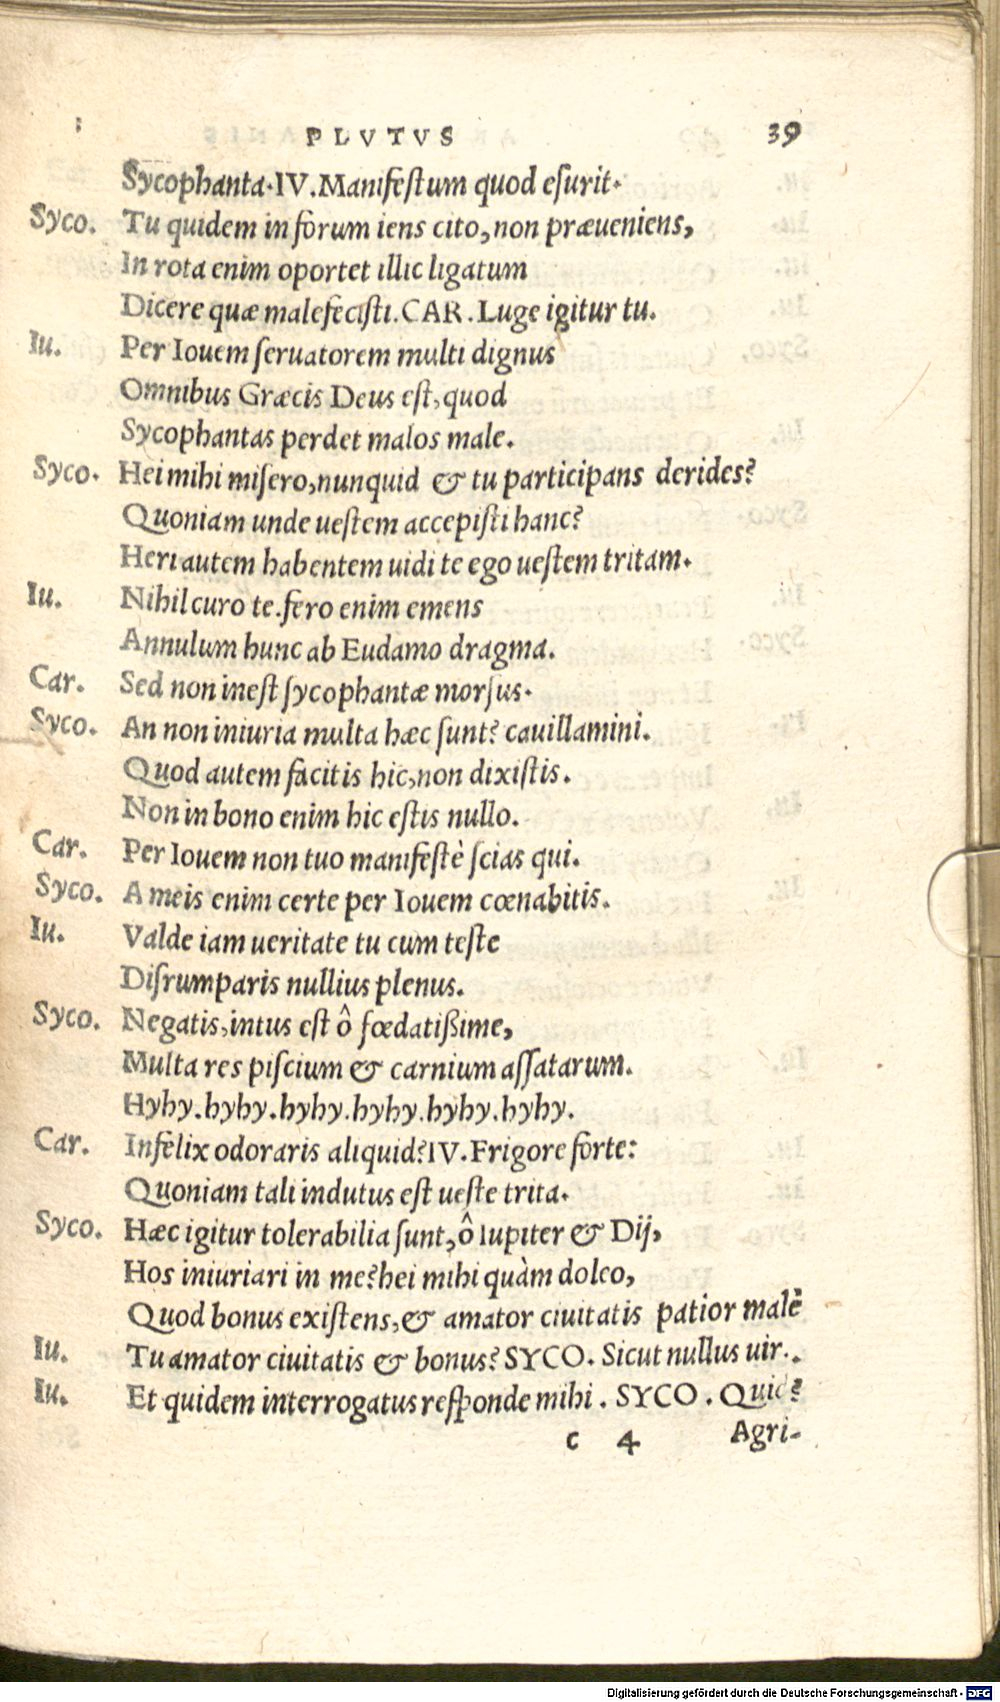 PLVTVS 39
Sycophanta. IV. Manifestum quod esurit.
Syco. Tu quidem in forum iens cito, non præueniens,
In rota enim oportet illic ligatum
Dicere quæ malefecisti. CAR. Luge igitur tu.
Iu. Per Iouem seruatorem multi dignus
Omnibus Græcis Deus est, quod
Sycophantas perdet malos male.
Syco. Hei mihi misero, nunquid & tu participans derides?
Quoniam unde uestem accepisti hanc?
Heri autem habentem uidi te ego uestem tritam.
Iu. Nihil curo te. fero enim emens
Annulum hunc ab Eudamo dragma.
Car. Sed non inest sycophantæ morsus.
Syco. An non iniuria multa hæc sunt? cauillamini.
Quod autem facitis hic, non dixistis.
Non in bono enim hic estis nullo.
Car. Per Iouem non tuo manifestè scias qui.
Syco. A meis enim certe per Iouem cœnabitis.
Iu. Valde iam ueritate tu cum teste
Disrumparis nullius plenus.
Syco. Negatis, intus est ô fœdatißime,
Multa res piscium & carnium assatarum.
Hyhy. hyhy. hyhy. hyhy. hyhy. hyhy.
Car. Infelix odoraris aliquid? IV. Frigore forte:
Quoniam tali indutus est ueste trita.
Syco. Hæc igitur tolerabilia sunt, ô Iupiter & Dij,
Hos iniuriari in me? hei mihi quàm doleo,
Quod bonus existens, & amator ciuitatis patior malè
Iu. Tu amator ciuitatis & bonus? SYCO. Sicut nullus uir.
Iu. Et quidem interrogatus responde mihi. SYCO. Quid?
c 4 Agri-
Digitalisierung gefördert durch die Deutsche Forschungsgemeinschaft - DFG